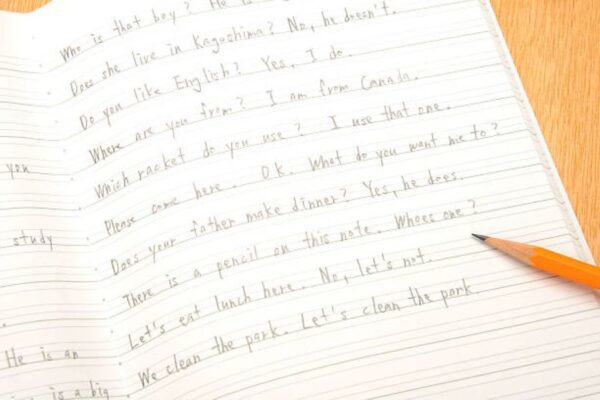 you
study
He is an
is a big
Who is that boy? He is
Does she live in Kagoshima? No, he doesn't.
Do you like English? Yes, I do.
Where are you from? I am from Canada.
Which racket do you use? I use that one.
Please come here. OK. What do you want me to?
Does your father make dinner? Yes, he does.
There is a pencil on this note. Whoes one?
Let's eat lunch here. No, let's not.
We clean the park. Let's clean the park.